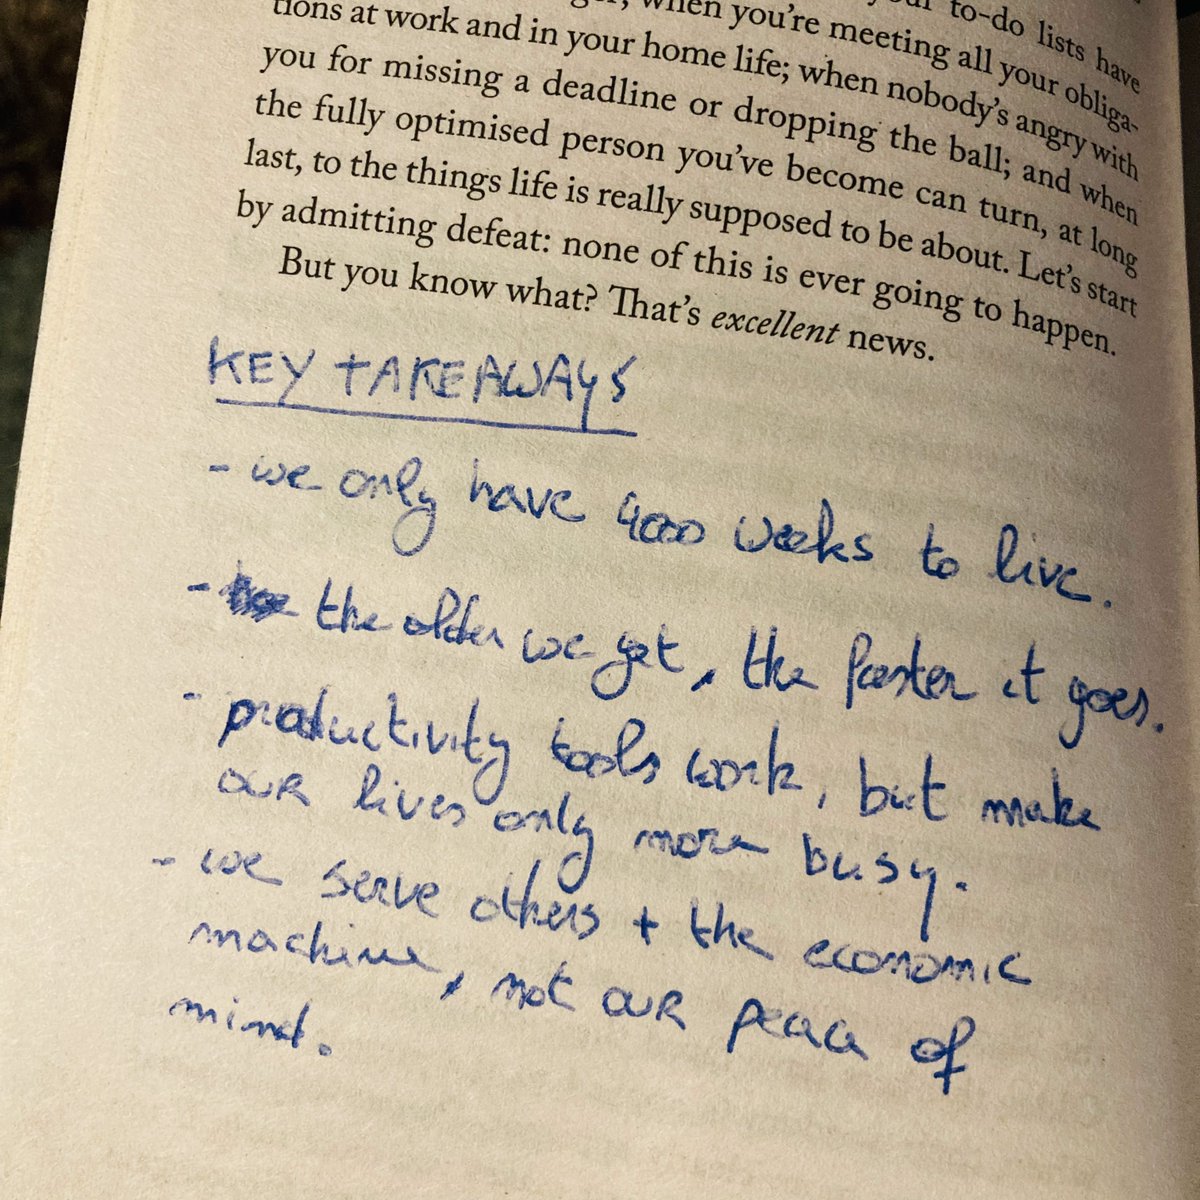 to-do lists have
when you're meeting all your obliga-
tions at work and in your home life; when nobody's angry with
you for missing a deadline or dropping the ball; and when
the fully optimised person you've become can turn, at long
last, to the things life is really supposed to be about. Let's start
by admitting defeat: none of this is ever going to happen.
But you know what? That's excellent news.
KEY TAKEAWAYS
- we only have 4000 weeks to live.
- the older we get, the faster it goes.
- productivity tools work, but make
our lives only more busy.
- we serve others + the economic
machine, not our peace of
mind.